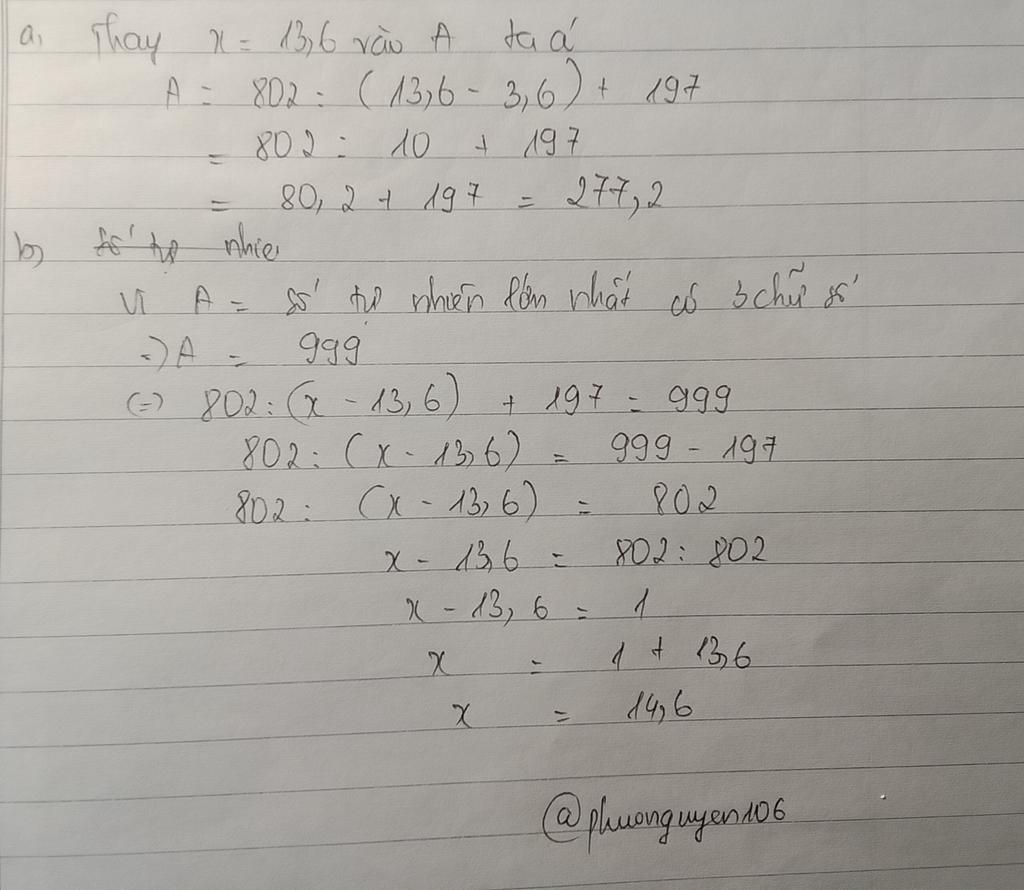 a, Thay x = 13,6 vào A ta có
A = 802 : (13,6 - 3,6) + 197
= 802 : 10 + 197
= 80,2 + 197 = 277,2
b) số tự nhie
Vì A = số tự nhiên lớn nhất có 3 chữ số
=> A = 999
(=) 802 : (x - 13,6) + 197 = 999
802 : (x - 13,6) = 999 - 197
802 : (x - 13,6) = 802
x - 13,6 = 802 : 802
x - 13,6 = 1
x = 1 + 13,6
x = 14,6
@phuonguyen106